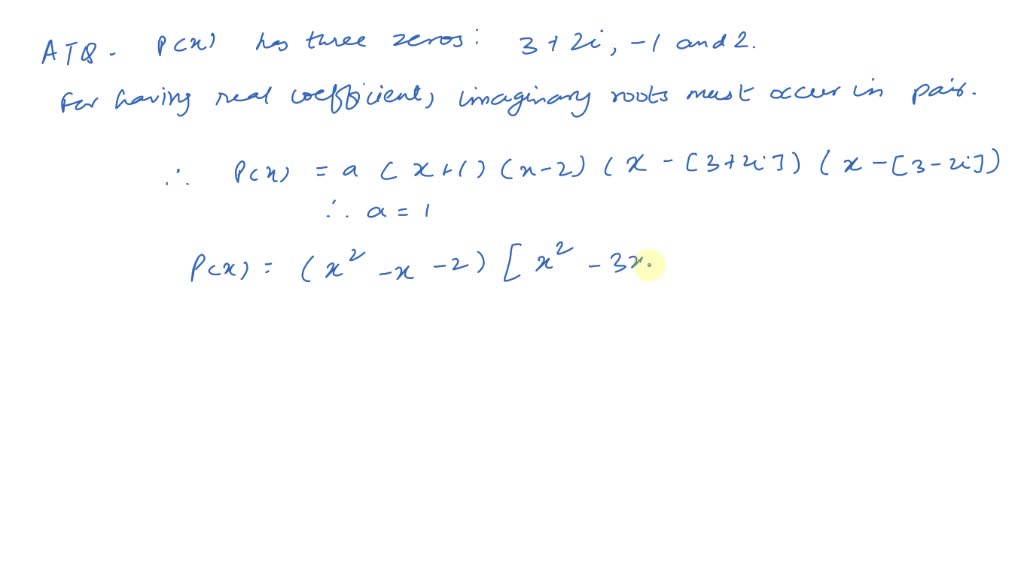 ATQ - P(x) has three zeros: 3+2i, -1 and 2.
For having real coefficient, imaginary roots must occur in pair.
∴ P(x) = a (x+1) (x-2) (x - [3+2i]) (x - [3-2i])
∴ a = 1
P(x) = (x² - x - 2) [x² - 3x